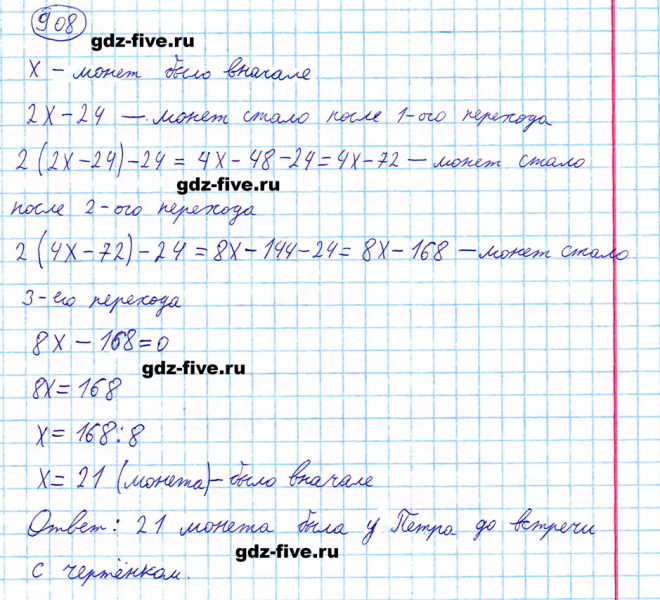 908
gdz-five.ru
х – монет было вначале
2х – 24 — монет стало после 1-ого перехода
2(2х – 24) – 24 = 4х – 48 – 24 = 4х – 72 — монет стало
gdz-five.ru
после 2-ого перехода
2(4х – 72) – 24 = 8х – 144 – 24 = 8х – 168 — монет стало
3-его перехода
8х – 168 = 0
gdz-five.ru
8х = 168
х = 168 : 8
х = 21 (монета) – было вначале
Ответ: 21 монета была у Петра до встречи
gdz-five.ru
с чертёнком.